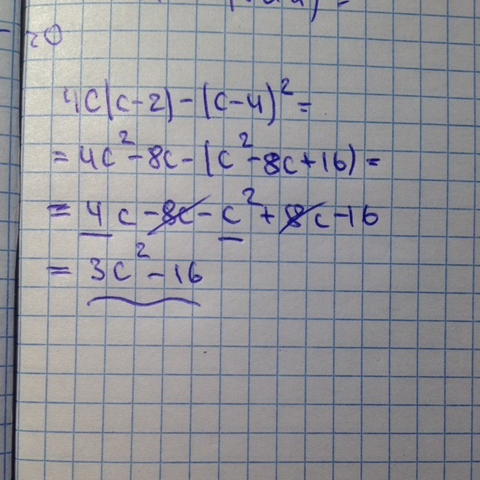 20
4c(c-2)-(c-4)²=
=4c²-8c-(c²-8c+16)=
=4c-8c-c²+8c-16
=3c²-16